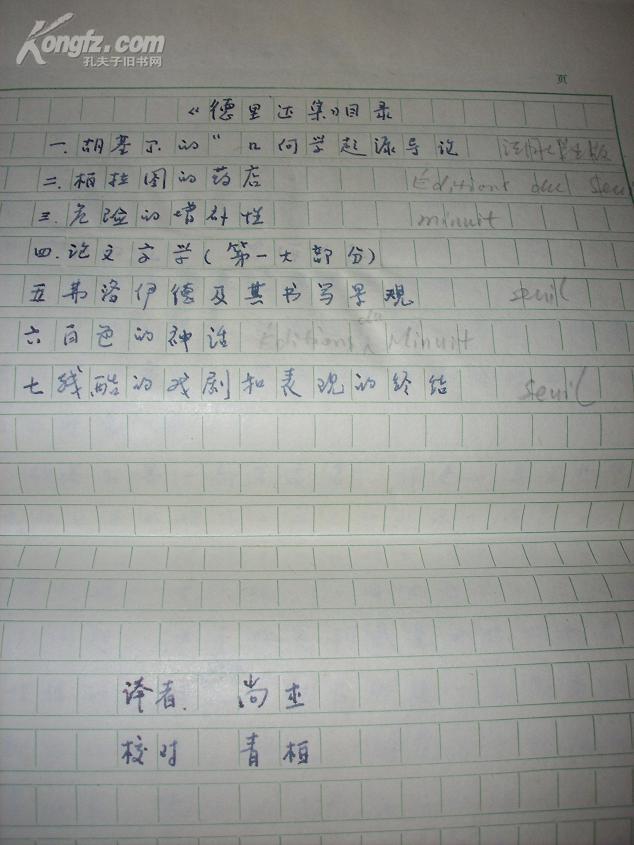 Kongfz.com
孔夫子旧书网
页
《德里达集》目录
一.胡塞尔的"几何学起源导论
二.柏拉图的药店 Éditions du Seuil
三.危险的增补性 minuit
四.论文字学(第一大部分)
五弗洛伊德及其书写景观 seuil
六白色的神话 Éditions du Minuit
七残酷的戏剧和表现的终结 Seuil
译者. 尚杰
校对 青柏